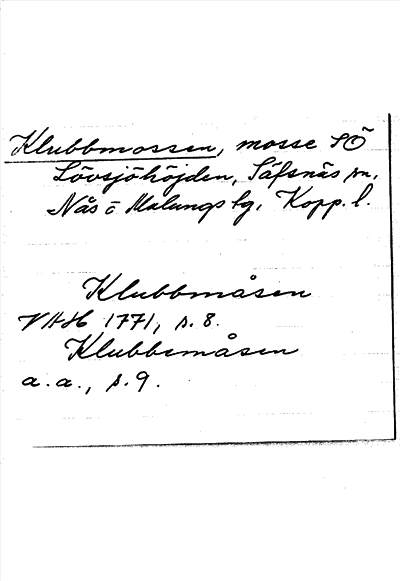 Klubbmossen, mosse SÖ
Lövsjöhöjden, Säfsnäs sn,
Nås o Malungs tg, Kopp. l.
Klubbmåsen
VAH 1771, s. 8.
Klubbemåsen
a. a., s. 9.